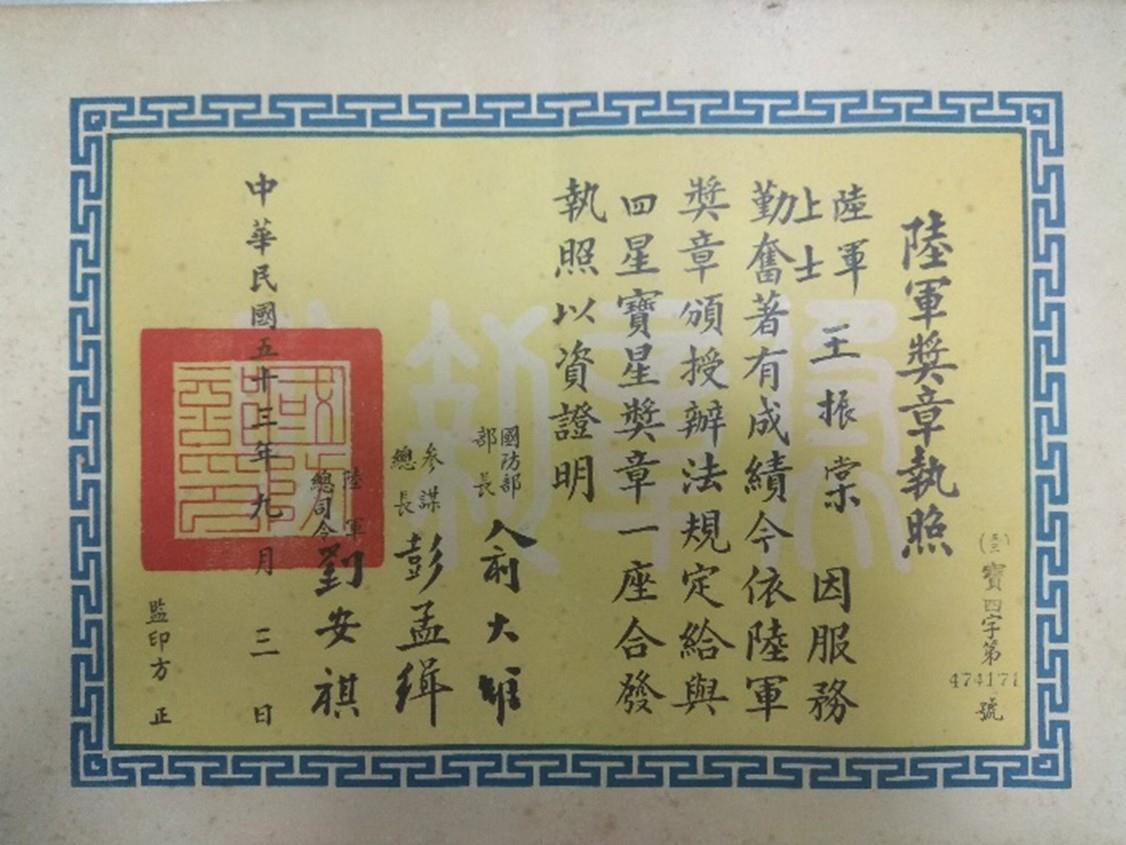 陸軍獎章執照
(五三)寶四字第474171號
陸軍
上士
王振棠 因服務
勤奮著有成績今依陸軍
獎章頒授辦法規定給與
四星寶星獎章一座合發
執照以資證明
國防部
部長
俞大維
參謀
總長
彭孟緝
陸軍
總司令
劉安祺
中華民國五十三年九月三日
監印方正